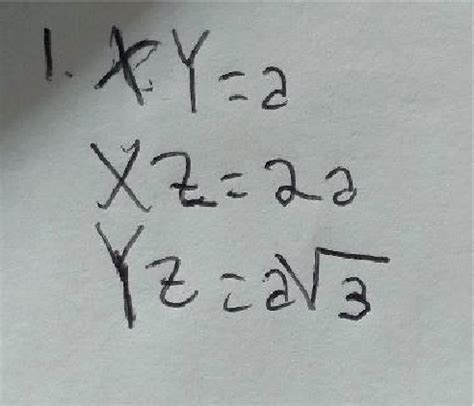 1. XY=a
XZ=2a
YZ=a√3